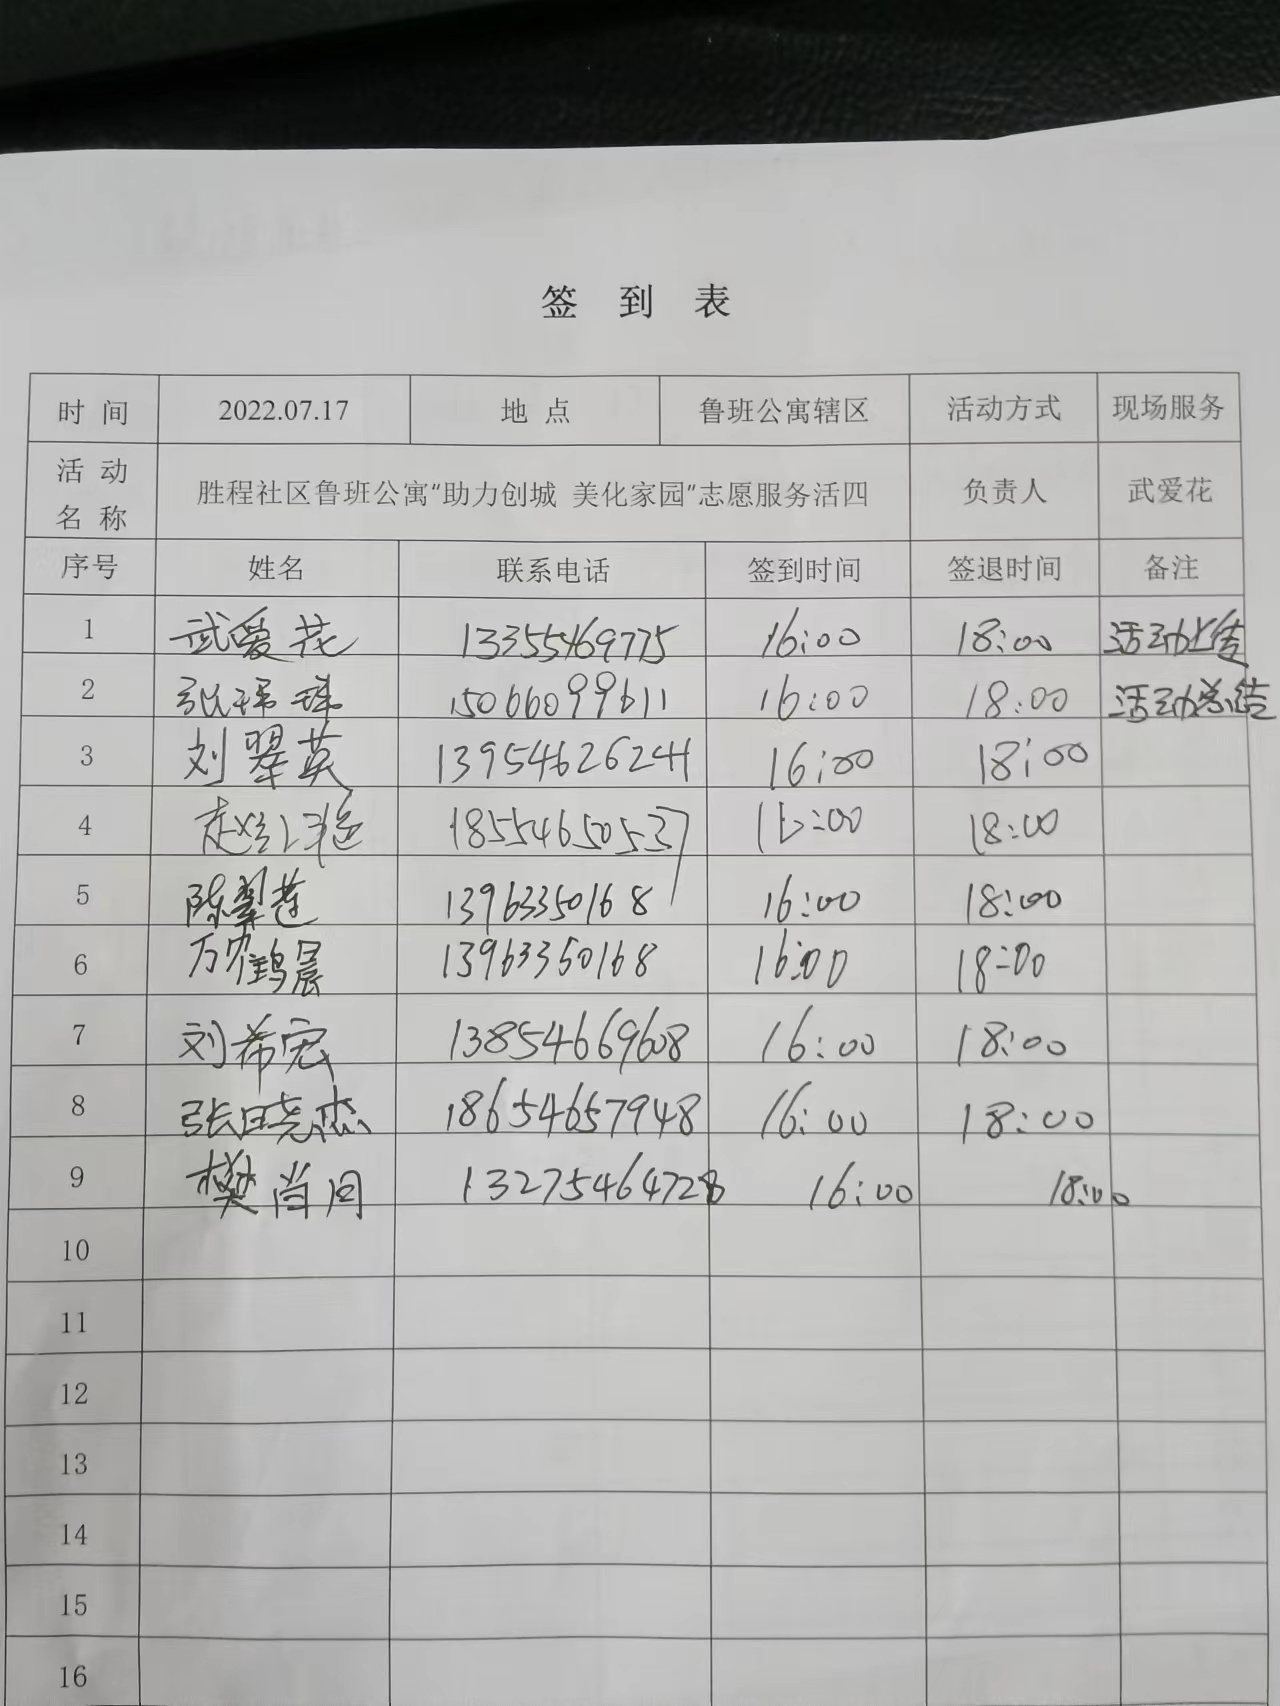 签 到 表
时 间 2022.07.17 地 点 鲁班公寓辖区 活动方式 现场服务
活 动 名 称 胜程社区鲁班公寓“助力创城 美化家园”志愿服务活四 负责人 武爱花
序号 姓名 联系电话 签到时间 签退时间 备注
1 武爱花 13355469775 16:00 18:00 活动上传
2 张 15066099611 16:00 18:00 活动总结
3 刘翠英 13954626241 16:00 18:00
4 赵 18554650537 16:00 18:00
5 陈翠莲 13963350168 16:00 18:00
6 万 鹤晨 13963350168 16:00 18:00
7 刘希宏 13854669608 16:00 18:00
8 张晓杰 18654657948 16:00 18:00
9 樊尚同 13275464728 16:00 18:00
10
11
12
13
14
15
16